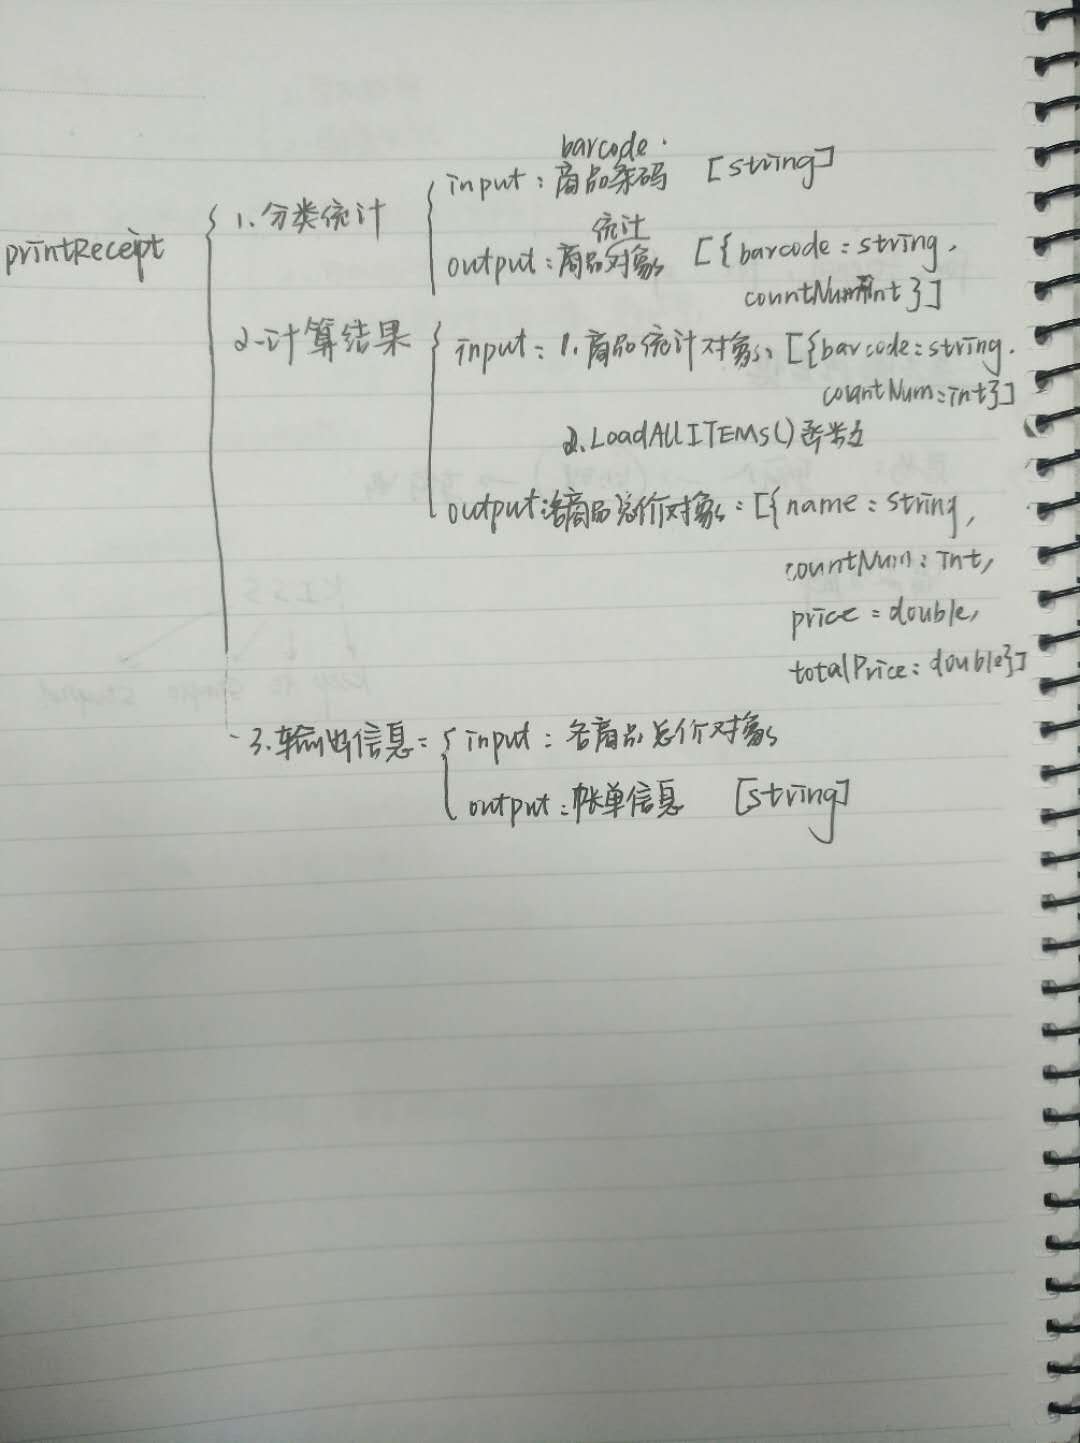 printReceipt
1. 分类统计
barcode.
input : 商品条码 [string]
统计
output : 商品对象 [{barcode : string,
countNum int}]
2. 计算结果
input : 1. 商品统计对象、[{barcode : string.
countNum : int}]
2. LoadAllITEMs() 函数
output : 各商品总价对象 : [{name : string,
countNum : int,
price : double,
totalPrice : double}]
3. 输出信息 : input : 各商品总价对象
output : 帐单信息 [string]
KISS